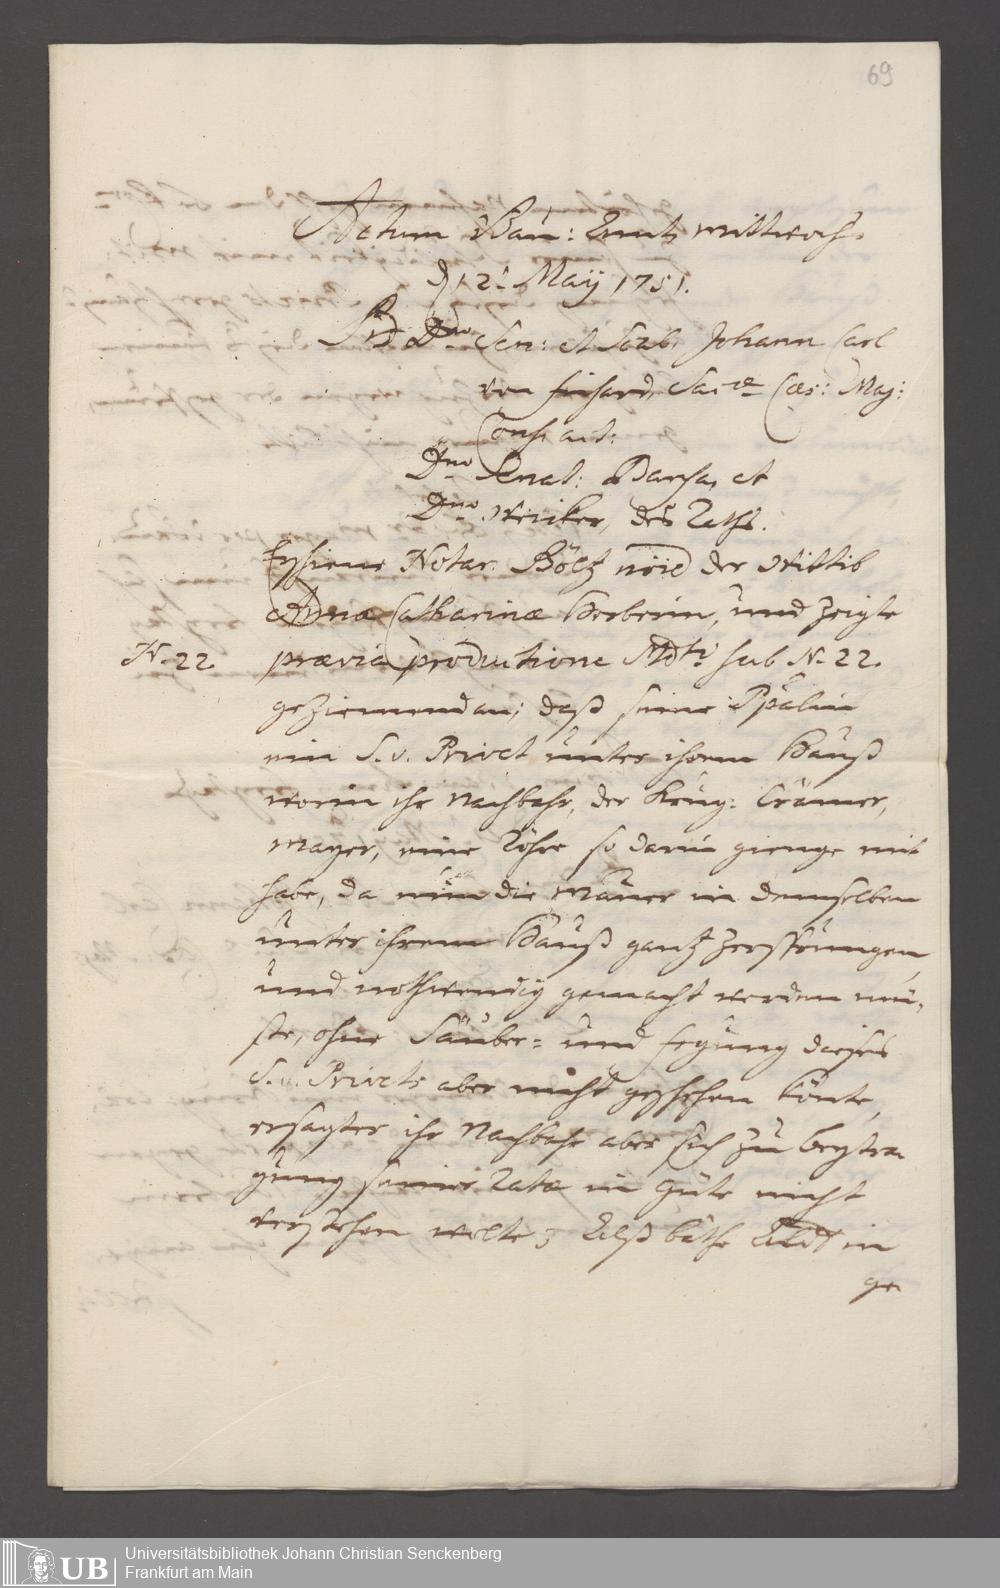 69
Actum Bau: Amt, Mittwochs
d 12t. May 1751.
Dno Sen: et Scab: Johann Carl
von Fichard, Sac. Cæs: Maj:
Cons: act:
Dno Senat: Bansa, et
Dno Weicker, des Raths.
Erschiene Notar. Böltz nöie der Wittib
Annæ Catharinæ Herberin, und zeigte
N. 22. prævia productione Mdti sub N. 22.
geziemend an; daß seine Ppalin
ein S. v. Privet unter ihrem Hauß
worin ihr Nachbahr, der Krug: Crämer,
Mayer, eine Röhre so darin gienge mit
habe, da nun die Mauer in demselben
unter ihrem Hauß gantz zersprungen,
und nothwendig gemacht werden mü-
ste, ohne Säuber- und fegung dieses
S. v. Privets aber nicht geschehen könte,
ersagter ihr Nachbahr aber sich zu beytra-
gung seiner Ratæ in Güte nicht
verstehen wolte; Alß bäthe in
ge
Universitätsbibliothek Johann Christian Senckenberg
Frankfurt am Main
UB